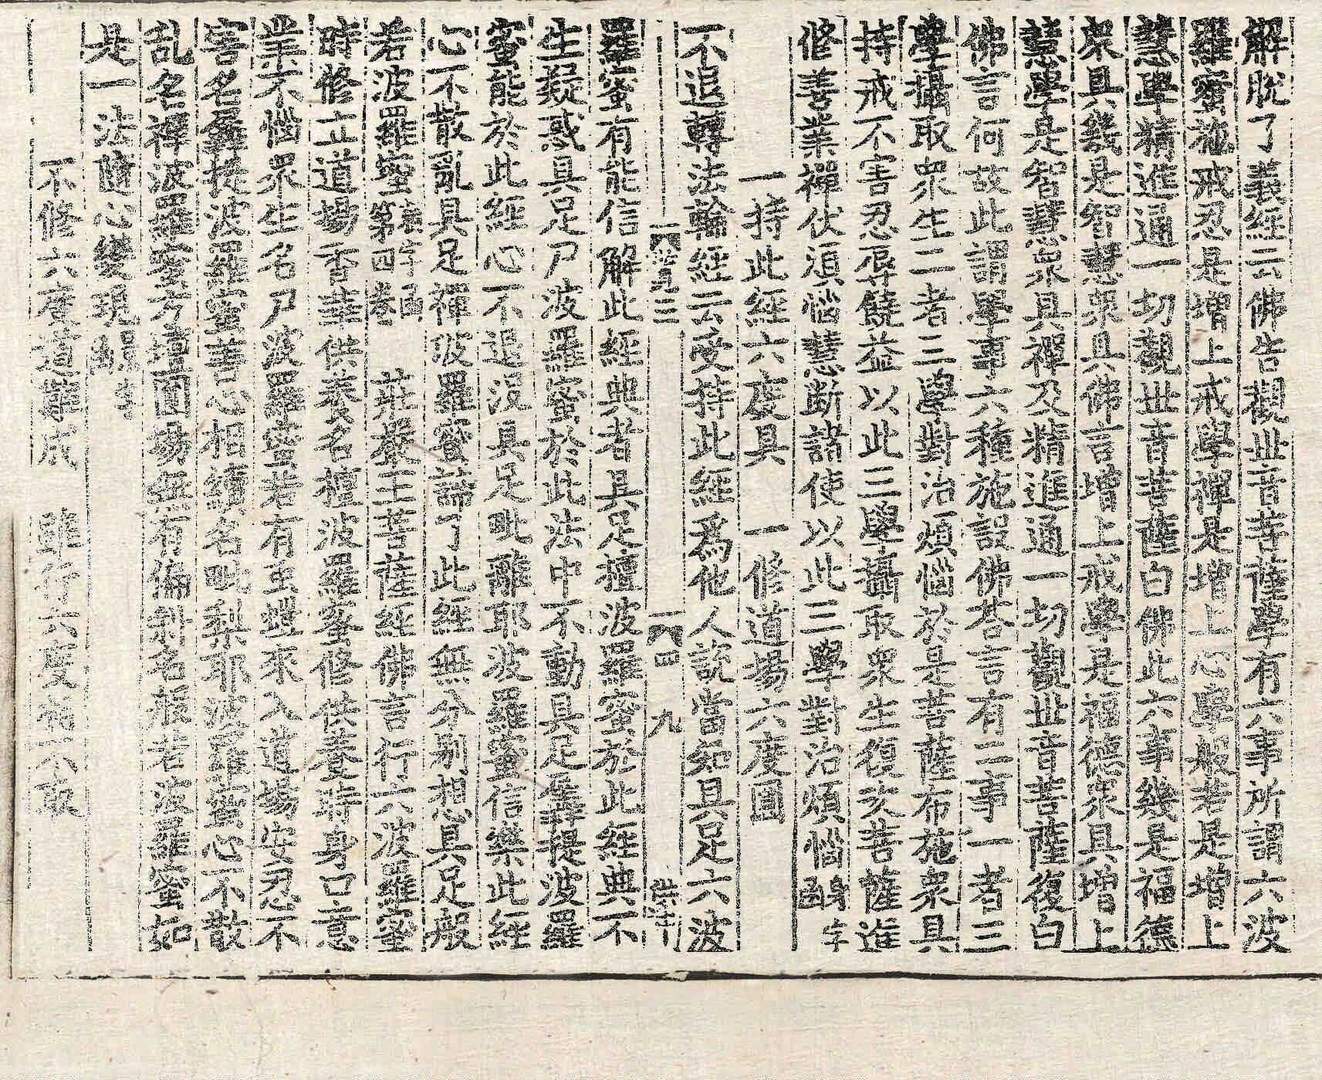 解脫了義經云佛告觀世音菩薩學有六事所謂六波
羅蜜施戒忍是增上戒學禪是增上心學般若是增上
慧學精進通一切觀世音菩薩白佛此六事幾是福德
衆具幾是智慧衆具佛言增上戒學是福德衆具增上
慧學是智慧衆具禪及精進通一切觀世音菩薩復白
佛言何故此謂學事六種施設佛荅言有二事一者三
學攝取衆生二者三學對治煩惱於是菩薩布施衆具
持戒不害忍辱饒益以此三學攝取衆生復次菩薩進
修善業禪伏煩惱慧斷諸使以此三學對治煩惱身字函
一持此經六度具 一修道場六度圓
不退轉法輪經云受持此經爲他人說當知具足六波
三 四 九
羅蜜有能信解此經典者具足檀波羅蜜於此經典不
生疑惑具足尸波羅蜜於此法中不動具足羼提波羅
蜜能於此經心不退没具足毗離耶波羅蜜信樂此經
心不散亂具足禪波羅蜜諦了此經無分別想具足般
若波羅蜜 字函第四卷 莊嚴王菩薩經佛言行六波羅蜜
時修立道場香華供養名檀波羅蜜修供養時身口意
業不惱衆生名尸波羅蜜若有蚊蝗來入道場安忍不
害名羼提波羅蜜善心相續名毗梨耶波羅蜜心不散
乱名禪波羅蜜方壇圓場無有偏斜名般若波羅蜜如
是一法隨心變現 字
不修六度道難成 雖行六度